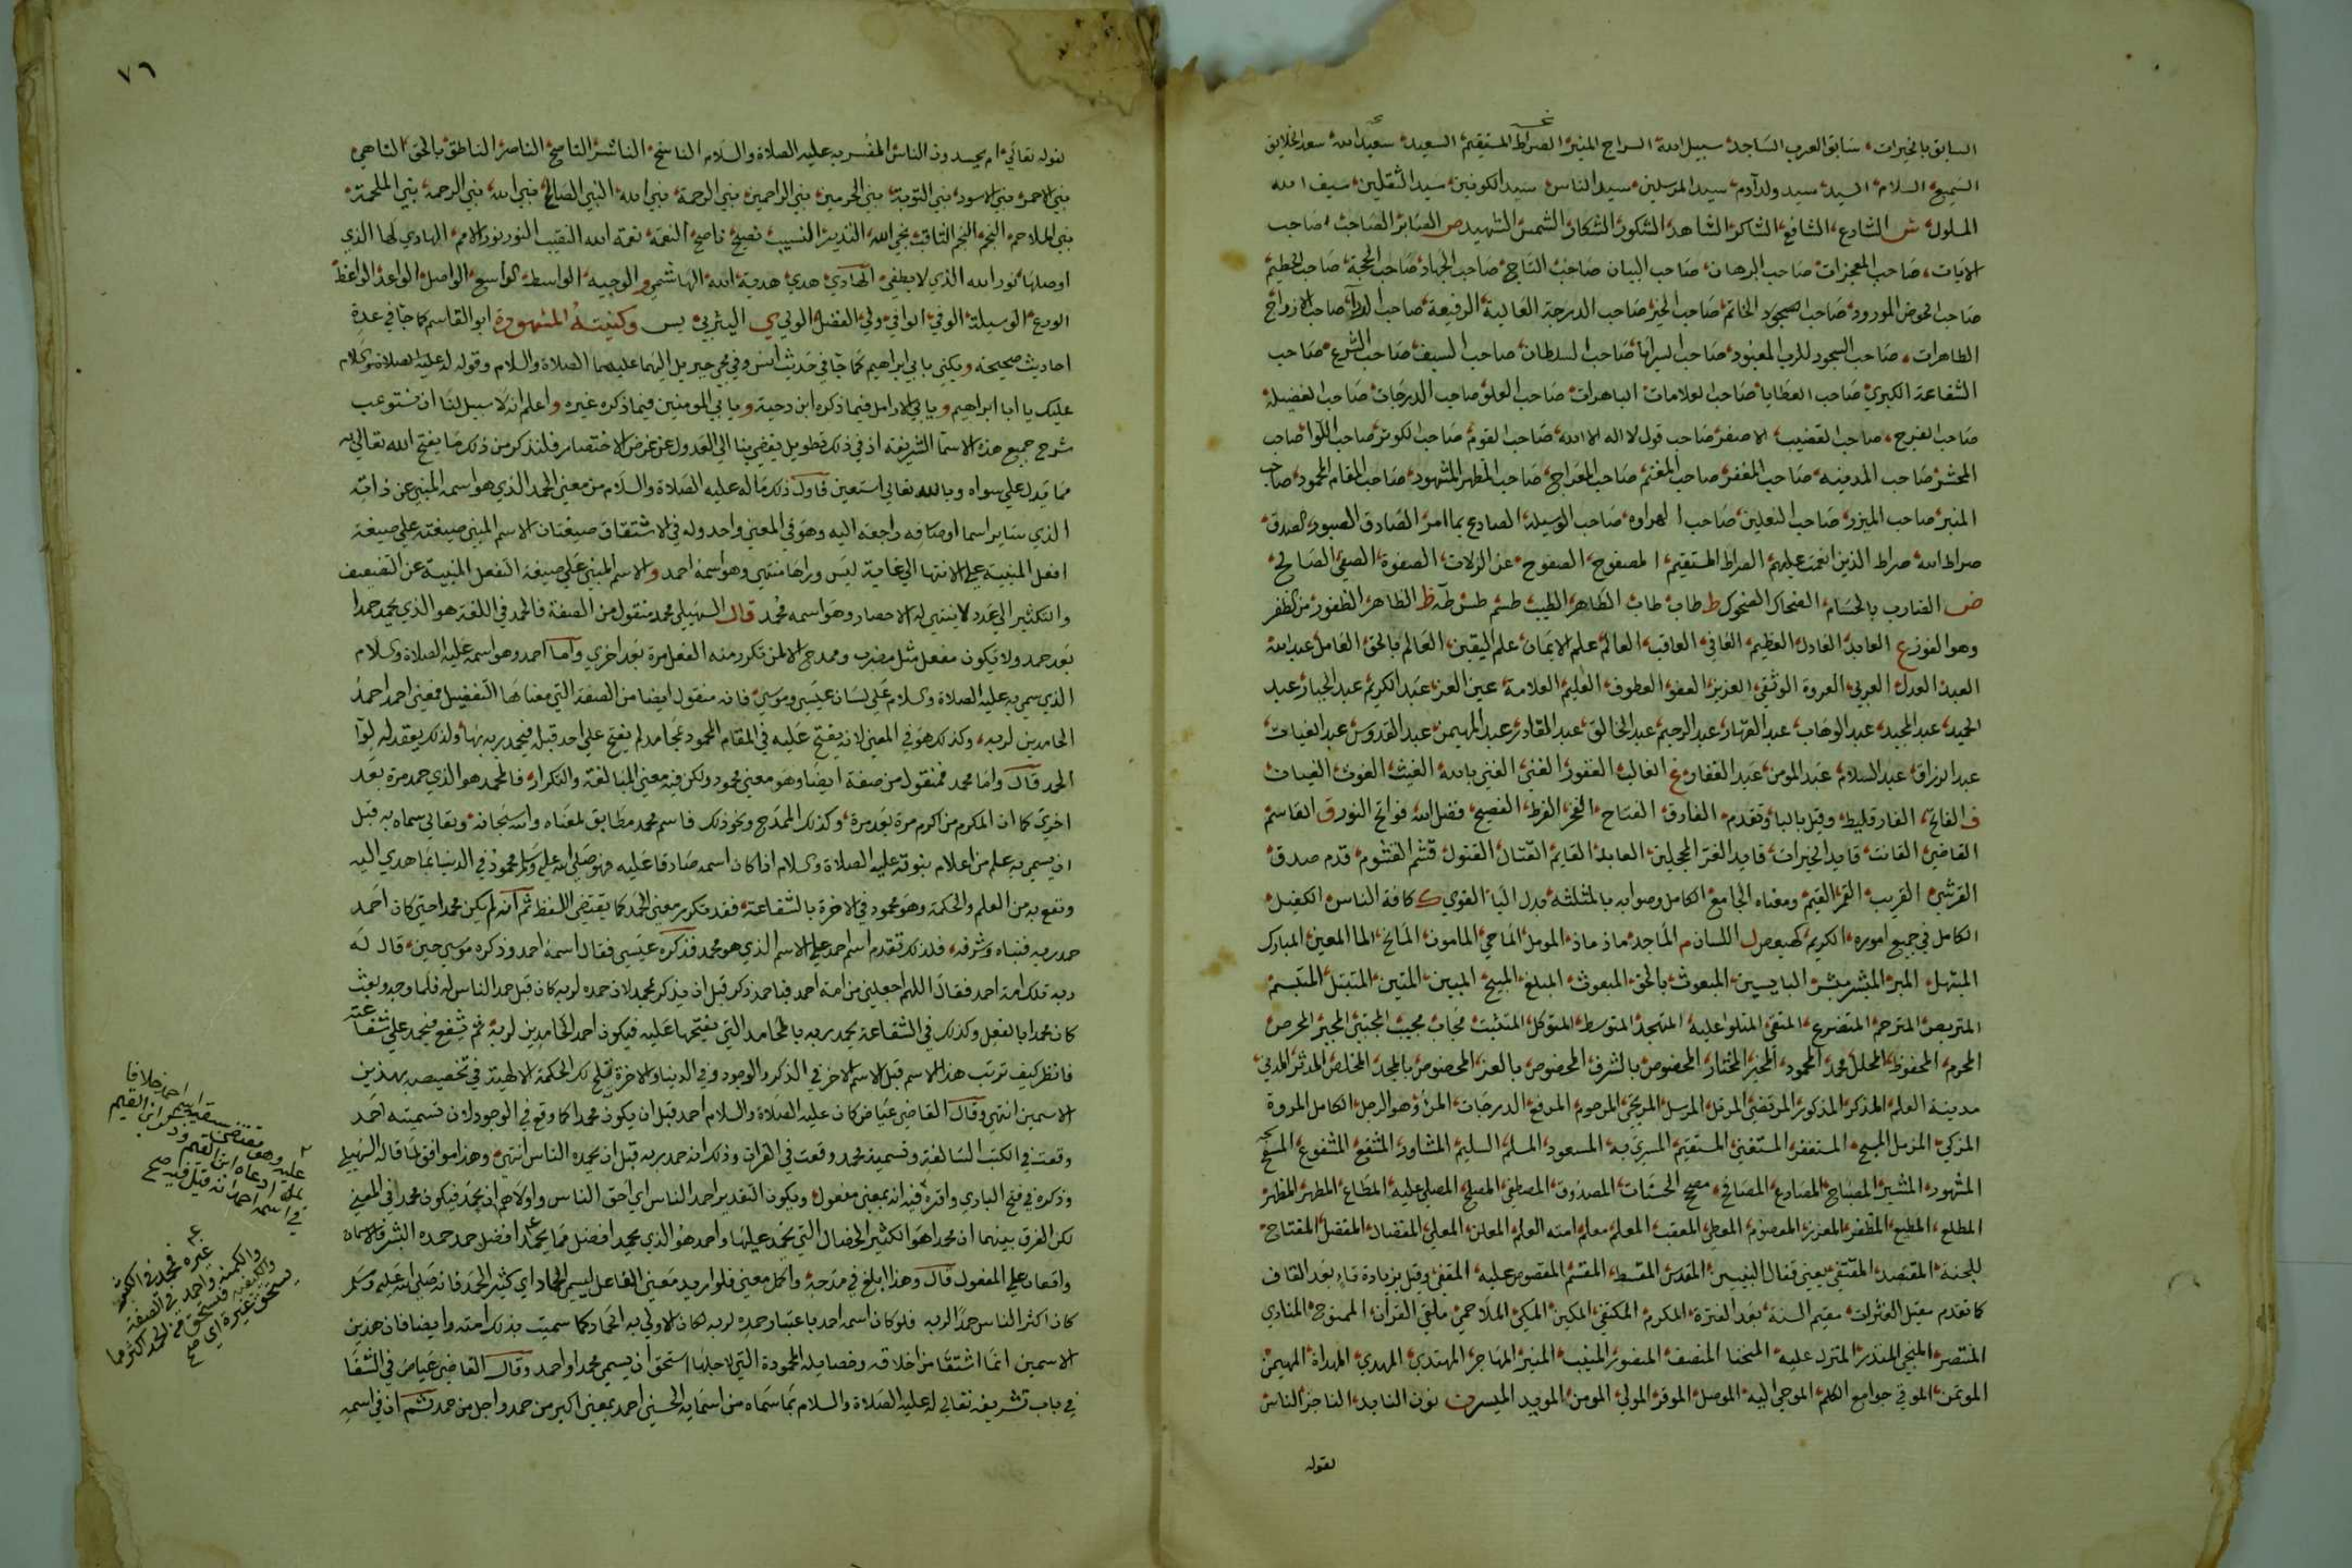 السابق بالخيرات، سابق العرب الساجد، سبيل الله، السراج المنير، الصراط المستقيم، السعيد، سعيد الله، سعد الخلايق
السميع، السلام، السيد، سيد ولد آدم، سيد المرسلين، سيد الناس، سيد الكونين، سيد الثقلين، سيف الله
المسلول، ش الشارع، الشافع، الشاكر، الشاهد، الشكور، الشكار، الشمس، الشهيد ص الصابر، الصاحب، صاحب
الايات، صاحب المعجزات، صاحب البرهان، صاحب البيان، صاحب التاج، صاحب الجهاد، صاحب الحجة، صاحب الحطيم
صاحب الحوض المورود، صاحب الخاتم، صاحب الخير، صاحب الدرجة العالية الرفيعة، صاحب الردا، صاحب الازواج
الطاهرات، صاحب السجود للرب المعبود، صاحب السرايا، صاحب السلطان، صاحب السيف، صاحب الشرع، صاحب
الشفاعة الكبري، صاحب العطايا، صاحب العلامات الباهرات، صاحب العلو، صاحب الدرجات، صاحب الفضيلة
صاحب الفرج، صاحب القضيب الاصفر، صاحب قول لا اله الا الله، صاحب القدم، صاحب الكوثر، صاحب اللوا، صاحب
المحشر، صاحب المدينه، صاحب المغفر، صاحب المغنم، صاحب المعراج، صاحب المظهر المشهود، صاحب المقام المحمود، صاحب
المنبر، صاحب الميزر، صاحب النعلين، صاحب الهراوه، صاحب الوسيلة، الصادع بما امر، الصادق، الصبور، الصدق
صراط الله، صراط الذين انعمت عليهم، الصراط المستقيم، الصفوح، الصفوح عن الزلات، الصفوة، الصفي، الصالح
ض الضارب بالحسام، الضحاك، الضحوك ط طاب طاب، الطاهر، الطيب، طسم، طس، طه ظ الظاهر، الظفور من الظفر
وهو الفوز ع العابد، العادل، العظيم، العافي، العاقب، العالم، علم الايمان، علم اليقين، العالم بالحق، العامل، عبد الله
العبد، العدل، العربي، العروة الوثقي، العزيز، العفو، العطوف، العليم، العلامة، عين العز، عبد الكريم، عبد الجبار، عبد
الحميد، عبد المجيد، عبد الوهاب، عبد القهار، عبد الرحيم، عبد الخالق، عبد القادر، عبد المهيمن، عبد القدوس، عبد الغياث
عبد الرزاق، عبد السلام، عبد المومن، عبد الغفار غ الغالب، الغفور، الغني، الغني بالله، الغيث، الغوث، الغياث
ف الفاتح، الفارقليط، وقيل بالبا وتقدم، الفارق، الفتاح، الفجر، الفرط، الفصيح، فضل الله، فواتح النور ق القاسم
القاضي، القانت، قايد الخيرات، قايد الغر المحجلين، العابد، القايم، القتال، القتول، قثم، القثوم، قدم صدق
القرشي، القريب، القمر، القيم، ومعناه الجامع الكامل وصوابه بالمثلثة بدل اليا، القوي ك كافة الناس، الكفيل
الكامل في جميع اموره، الكريم، كهيعص ل اللسان م الماجد، ماذ ماذ، المومل، الماحي، المامون، المانح، الما المعين، المبارك
المبتهل، المبر، المبشر، مبشر البايسين، المبعوث بالحق، المبعوث، المبلغ، المبيح، المبين، المتين، المتبتل، المتبسم
المتربص، المترحم، المتضرع، المتقي، المتلو عليه، المتهجد، المتوسط، المتوكل، المتثبت، مجاب، مجيب، المجتبي، المجير، المحرض
المحرم، المحفوظ، المحلل، محمد، المحمود، المخبر، المختار، المخصوص بالشرف، المخصوص بالعز، المخصوص بالمجد، المخلص، المدثر، المدني
مدينة العلم، المذكر، المذكور، المرتضي، المرتل، المرسل، المرتجي، المرحوم، المرفع الدرجات، المرء وهو الرجل الكامل المروة
المزكي، المزمل، المسبح، المستغفر، المستغني، المستقيم، المسري به، المسعود، المسلم، السليم، المشاور، المشفع، المشفوع، المشفح
المشهود، المشير، المصباح، المصارع، المصافح، مصحح الحسنات، المصدوق، المصطفي، المصلح، المصلي عليه، المطاع، المطهر، المظهر
المطلع، المطيع، المظفر، المعزز، المعصوم، المعطي، المعقب، المعلم، معلم امته، العلم، المعلن، المعلي، المفضال، المفضل، المفتاح
للجنة، المقتصد، المقتفي يعني فقال النبيين، المقدس، المقسط، المقسم، المقصوص عليه، المقفي وقيل بزيادة تاء بعد القاف
كما تقدم، مقيل العثرات، مقيم السنة بعد الفترة، المكرم، المكتفي، المكين، المكي، الملاحمي، ملقي القران، الممنوح، المنادي
المنتصر، المنجي، المنذر، المنزل عليه، المنحنا، المنصف، المنصور، المنيب، المنير، المهاجر، المهتدي، المهدي، المهداة، المهيمن
الموتمن، الموتي جوامع الكلم، الموحي اليه، الموصل، الموقر، المولي، المومن، المويد، الميسر ن نون، النابذ، الناجز، الناس
لقوله
٧٦
لقوله تعالي ام يحسدون الناس المفسر به عليه الصلاة والسلام، الناسخ، الناشر، الناصح، الناصر، الناطق بالحق، الناهي
نبي الاحمر، نبي الاسود، نبي التوبة، نبي الحرمين، نبي الراحمين، نبي الرحمة، نبي الله، النبي الصالح، نبي الله، نبي الرحمة، نبي الملحمة
نبي الملاحم، النجم، النجم الثاقب، نجي الله، النذير، النسيب، نصيح، ناصح، النعمة، نعمة الله، النقيب، النور، نور الامم، الهادي لها الذي
اوصلها، نور الله الذي لا يطفي، الهادي، هدي، هدية الله، الهاشمي و الوجيه، الواسط، الواسع، الواصل، الواعد، الواعظ
الورع، الوسيلة، الوفي، الوافي، ولي الفضل، الولي ي اليثربي، يس وكنيته المشهورة ابو القاسم كما جا في عدة
احاديث صحيحه ويكني بابي ابراهيم كما جا في حديث انس وفي مجي جبريل اليهما عليهما الصلاة والسلام وقوله له عليه الصلاة والسلام
عليك يا ابا ابراهيم وبابي الارامل فيما ذكره ابن دحية وبابي المومنين فيما ذكره غيره واعلم انه لا سبيل لنا ان نستوعب
شرح جميع هذه الاسما الشريفه اذ في ذلك تطويل يفضي بنا الي العدول عن غرض الاختصار فلنذكر من ذلك ما يفتح الله تعالي به
مما يدل علي سواه وبالله تعالي استعين فاول ذلك ما له عليه الصلاة والسلام من معني الحمد الذي هو اسمه المنبي عن ذاته
الذي ساير اسما اوصافه راجعه اليه وهو في المعني واحد وله في الاشتقاق صيغتان الاسم المبني صيغته علي صيغة
افعل المنبية علي الانتها الي غاية ليس وراها منتهي وهو اسمه احمد والاسم المبني علي صيغة التفعل المنبية عن التضعيف
والتكثير الي عدد لا ينتهي له الاحصار وهو اسمه محمد قال السهيلي محمد منقول من الصفة فالحمد في اللغة هو الذي يحمد حمدا
بعد حمد ولا يكون مفعل مثل مضرب وممدح الا لمن تكرر منه الفعل مرة بعد اخري واما احمد وهو اسمه عليه الصلاة والسلام
الذي سمي به عليه الصلاة والسلام علي لسان عيسي وموسي فانه منقول ايضا من الصفة التي معناها التفضيل فمعني احمد احمد
الحامدين لربه، وكذلك هو في المعني لانه يفتح عليه في المقام المحمود بمحامد لم يفتح علي احد قبله فيحمد ربه بها ولذلك يعقد له لوا
الحمد قال واما محمد فمنقول من صفة ايضا وهو معني محمود ولكن فيه معني المبالغة والتكرار، فالمحمد هو الذي حمد مرة بعد
اخري كما ان المكرم من اكرم مرة بعد مرة، وكذلك الممدح ونحو ذلك فاسم محمد مطابق لمعناه والله سبحانه وتعالي سماه به قبل
ان يسمي به علم من اعلام نبوته عليه الصلاة والسلام اذا كان اسمه صادقا عليه فهو صلي الله عليه وسلم محمود في الدنيا بما هدي اليه
ونفع به من العلم والحكمة وهو محمود في الاخرة بالشفاعة فقد تكرر معني الحمد كما يقتضي اللفظ ثم انه لم يكن محمدا حتي كان احمد
حمد ربه فنباه وشرفه، فلذلك تقدم اسم احمد علي الاسم الذي هو محمد فذكره عيسي فقال اسمه احمد وذكره موسي حين قال له
ربه تلك امة احمد فقال اللهم اجعلني من امة احمد فباحمد ذكر قبل ان يذكر بمحمد لان حمده لربه كان قبل حمد الناس له فلما وجد وبعث
كان محمدا بالفعل وكذلك في الشفاعة يحمد ربه بالمحامد التي يفتحها عليه فيكون احمد الحامدين لربه ثم يشفع فيحمد علي شفاعته
فانظر كيف ترتب هذا الاسم قبل الاسم الاخر في الذكر والوجود وفي الدنيا والاخرة تلح لك الحكمة الالهية في تخصيصه بهذين
الاسمين انتهي وقال القاضي عياض كان عليه الصلاة والسلام احمد قبل ان يكون محمدا كما وقع في الوجود لان تسميته احمد
وقعت في الكتب السالفة وتسميته محمد وقعت في القران وذلك انه حمد ربه قبل ان يحمده الناس انتهي وهذا موافق لما قاله السهيلي
وذكره في فتح الباري واقره فيه انه بمعني مفعول ويكون التقدير احمد الناس اي احق الناس واولاهم ان يحمد فيكون محمدا في المعني
لكن الفرق بينهما ان محمدا هو الكثير الخصال التي يحمد عليها واحمد هو الذي يحمد افضل مما يحمد افضل حمد حمده البشر فالاسمان
واقعان علي المفعول قال وهذا ابلغ في مدحه واكمل معني فلو اريد معني الفاعل لسمي الحماد اي كثير الحمد فانه صلي الله عليه وسلم
كان اكثر الناس حمدا لربه فلو كان اسمه احمد باعتبار حمده لربه لكان الاولي به الحماد كما سميت بذلك امته وايضا فان هذين
الاسمين انما اشتقا من اخلاقه وخصايله المحمودة التي لاجلها استحق ان يسمي محمدا واحمد وقال القاضي عياض في الشفا
في باب تشريفه تعالي له عليه الصلاة والسلام بما سماه من اسمايه الحسني احمد بمعني اكبر من حمد واجل من حمد ثم ان في اسمه
عليه وهو مقتضي سبقية اسم احمد خلافا
لما ادعاه ابن القيم وذكر ابن القيم
في اسمه احمد انه قيل فيه صح
غيره فمحمد في الكثرة
والكمية واحمد في الصفة
والكيفية فيستحق من الحمد اكثر مما
يستحق غيره اي صح